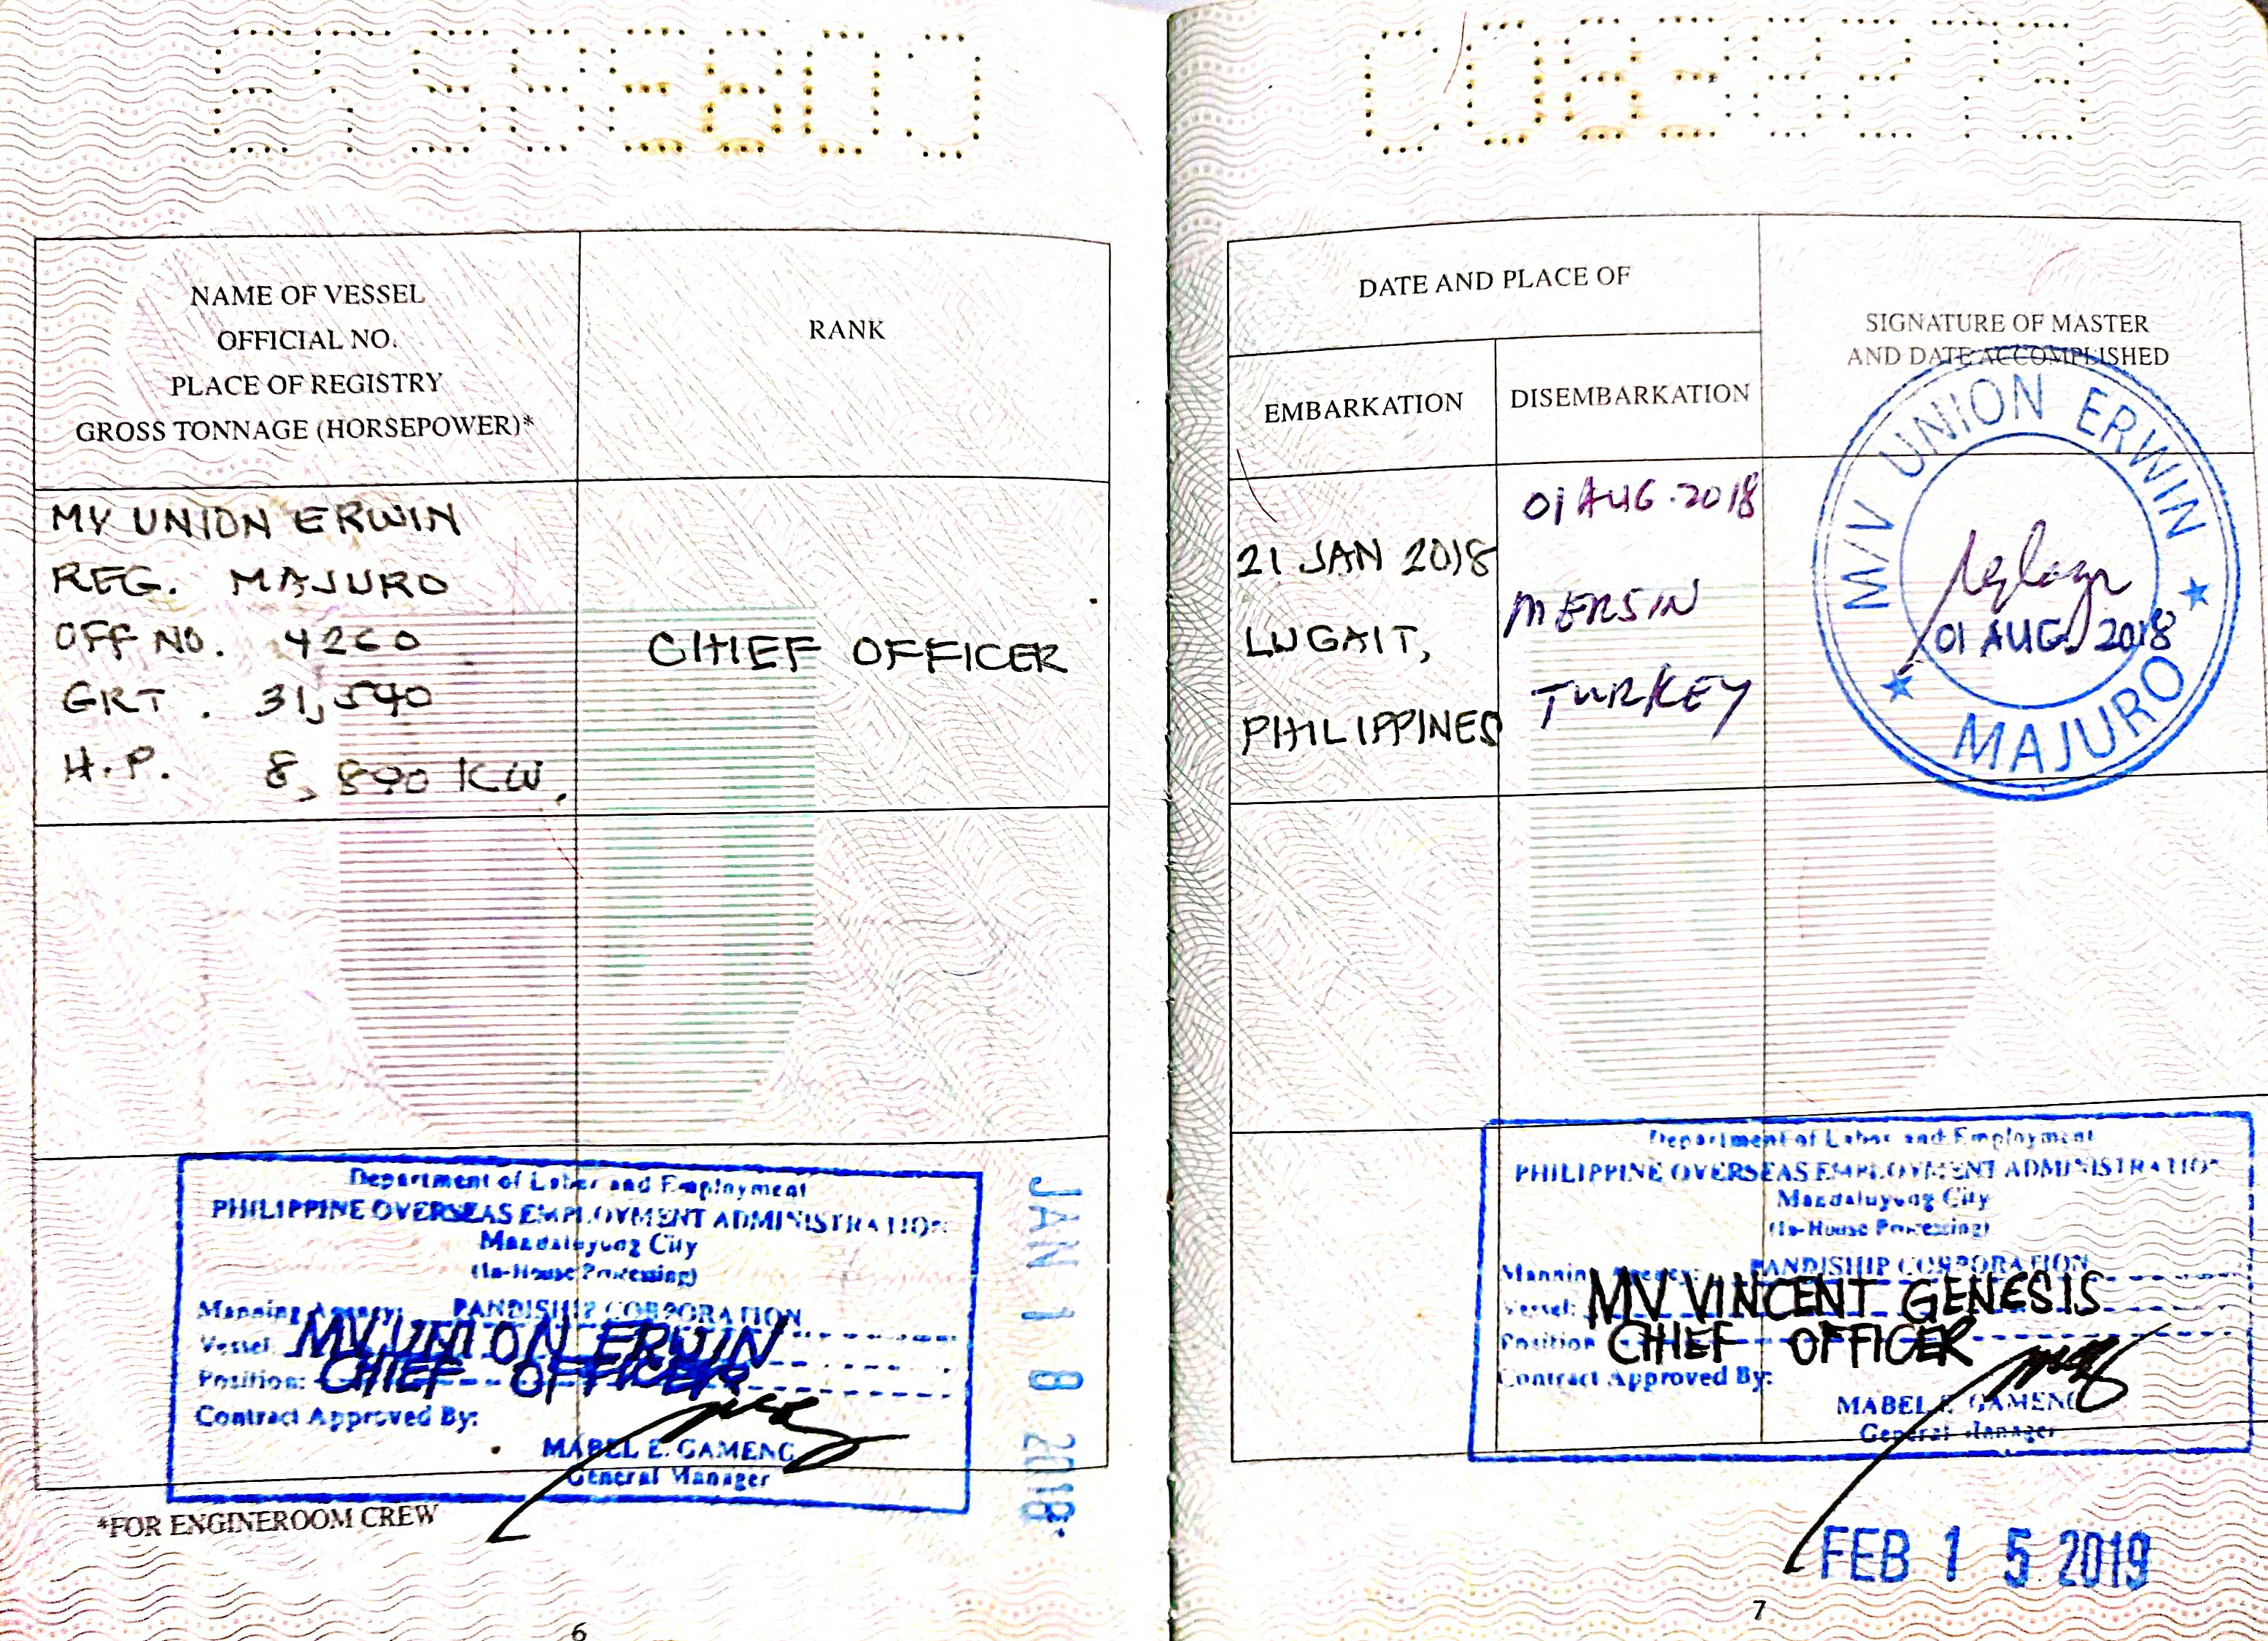 NAME OF VESSEL
OFFICIAL NO.
PLACE OF REGISTRY
GROSS TONNAGE (HORSEPOWER)*
RANK
MV UNION ERWIN
REG. MAJURO
OFF NO. 4260
GRT. 31,540
H.P. 8,890 KW.
CHIEF OFFICER
Department of Labor and Employment
PHILIPPINE OVERSEAS EMPLOYMENT ADMINISTRATION
Mandaluyong City
(In-House Processing)
Manning Agency: PANDISHIP CORPORATION
Vessel: MV UNION ERWIN
Position: CHIEF OFFICER
Contract Approved By:
MABEL E. GAMENG
General Manager
JAN 18 2018
*FOR ENGINEROOM CREW
6
DATE AND PLACE OF
EMBARKATION
DISEMBARKATION
SIGNATURE OF MASTER
AND DATE ACCOMPLISHED
21 JAN 2018
LUGAIT,
PHILIPPINES
01 AUG. 2018
MERSIN
TURKEY
M/V UNION ERWIN
01 AUG. 2018
MAJURO
Department of Labor and Employment
PHILIPPINE OVERSEAS EMPLOYMENT ADMINISTRATION
Mandaluyong City
(In-House Processing)
Manning Agency: PANDISHIP CORPORATION
Vessel: MV VINCENT GENESIS
Position CHIEF OFFICER
Contract Approved By:
MABEL E. GAMENG
General Manager
FEB 15 2019
7